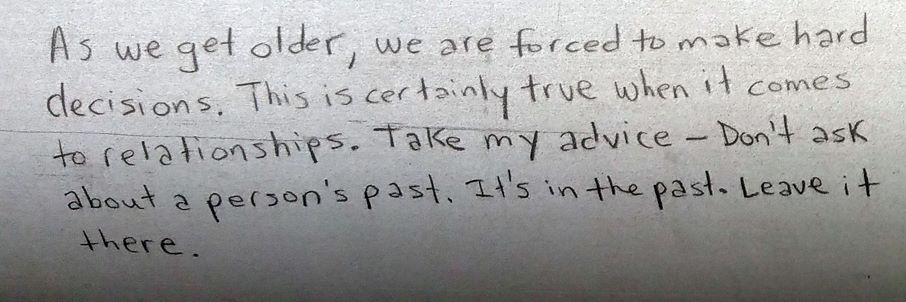 As we get older, we are forced to make hard
decisions. This is certainly true when it comes
to relationships. Take my advice – Don't ask
about a person's past. It's in the past. Leave it
there.